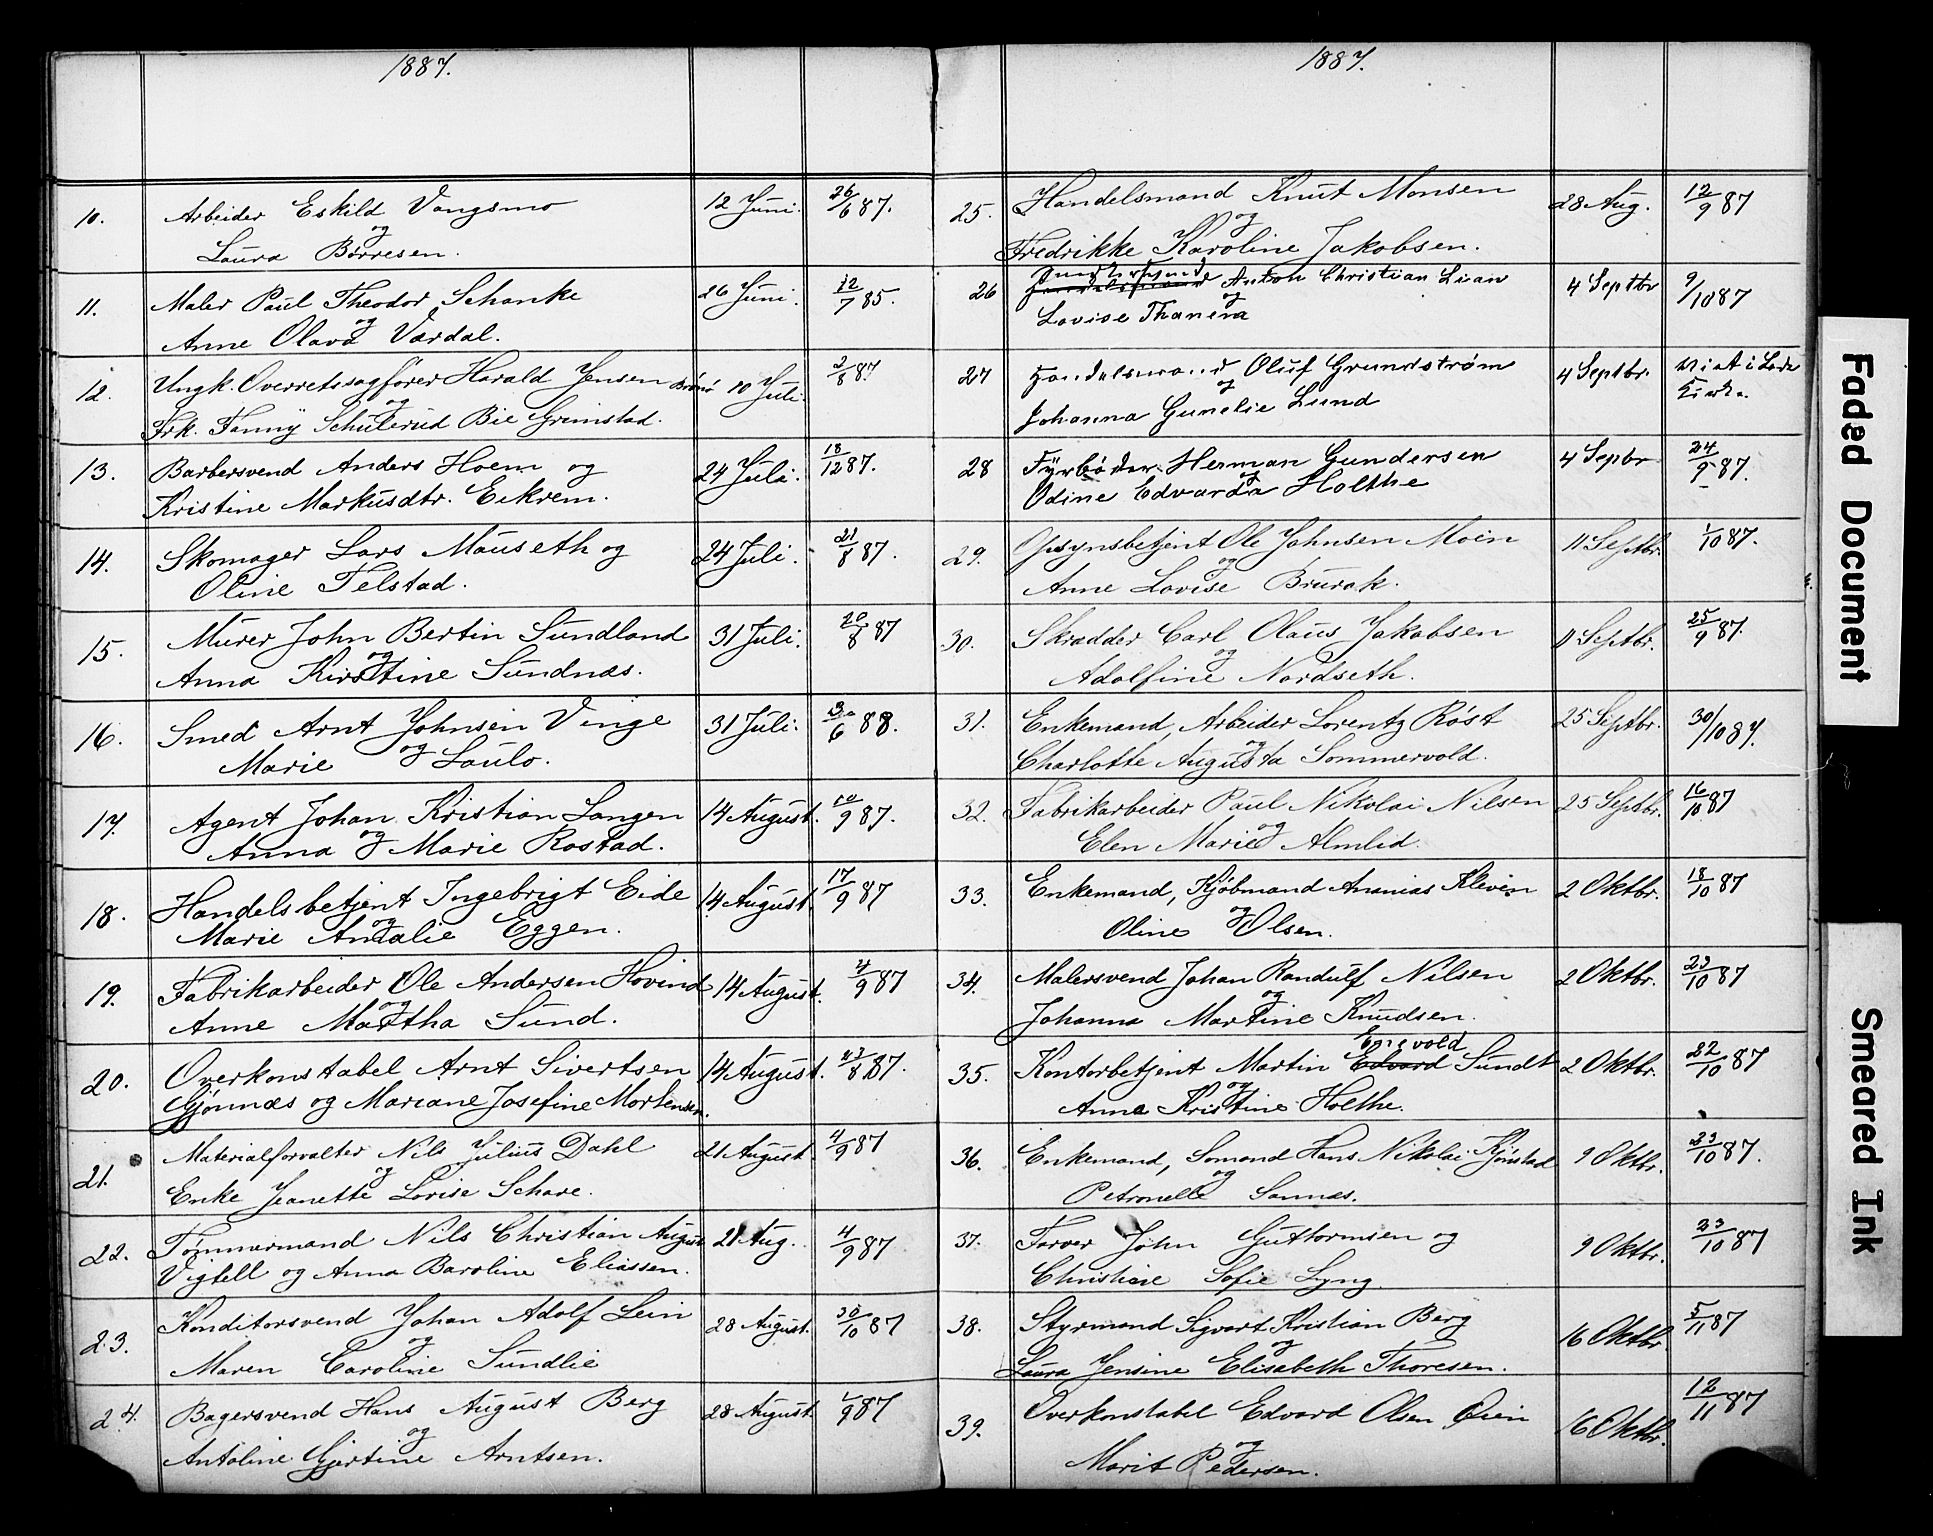 1887.
10. Arbeider Eskild Vangsmo 12 Juni. 26/6 87.
og
Laura Børresen.
11. Maler Paul Theodor Schanke 26 Juni. 12/7 85.
og
Anne Olava Vardal.
12. Ungk. Overretssagfører Harald Jensen 10 Juli. 2/8 87.
og
Frk. Fanny Schulerud Bie Grimstad.
13. Barbersvend Anders Hoem og 24 Juli. 18/12 87.
Kristine Markusdtr. Eikrem.
14. Skomager Lars Mauseth og 24 Juli. 21/8 87.
Oline Telstad.
15. Murer John Bertin Sundland 31 Juli. 20/8 87
og
Anna Kirstine Sundnæs.
16. Smed Arnt Johnsen Vinge 31 Juli. 3/6 88.
og
Marie Laulo.
17. Agent Johan Kristian Langen 14 August. 10/9 87.
og
Anna Marie Rostad.
18. Handelsbetjent Ingebrigt Eide 14 August. 17/9 87
og
Marie Amalie Eggen.
19. Fabrikarbeider Ole Andersen Hovind 14 August. 4/9 87
og
Anne Martha Sund.
20. Overkonstabel Arnt Sivertsen 14 August. 23/8 87.
Gjønnæs og Mariane Josefine Mortensen.
21. Materialforvalter Nils Julius Dahl 21 August 4/9 87
og
Enke Jeanette Lovise Schave.
22. Tømmermand Nils Christian August 21 Aug. 4/9 87
Vigtell og Anna Baroline Eliassen.
23. Konditorsvend Johan Adolf Lein 28 August. 30/10 87
og
Maren Caroline Sundlie
24. Bagersvend Hans August Berg 28 August. 1/9 87
og
Antoline Gjertine Arntsen.
1887.
25. Handelsmand Knut Monsen 28 Aug. 12/9 87
og
Fredrikke Karoline Jakobsen.
26 Anton Christian Lian 4 Septbr 9/10 87
og
Lovise Thanem
27 Handelsmand Oluf Grundstrøm 4 Septbr. Viet i Lade
og Kirke.
Johanna Gunelie Lund
28 Fyrbøder Herman Gundersen 4 Sepbr 24/9 87.
og
Odine Edvarda Holthe
29. Opsynsbetjent Ole Johnsen Moen 11 Septbr. 1/10 87.
og
Anne Lovise Brurok.
30. Skrædder Carl Olaus Jakobsen 11 Septbr. 25/9 87.
og
Adolfine Nordseth.
31. Enkemand, Arbeider Lorentz Røst 25 Septbr. 30/10 87.
og
Charlotte Augusta Sommervold.
32. Fabrikarbeider Paul Nikolai Nilsen 25 Septbr. 16/10 87
og
Elen Marie Almlid.
33. Enkemand, Kjøbmand Ananias Kleven 2 Oktbr. 18/10 87
og
Oline Olsen.
34. Malersvend Johan Randulf Nilsen 2 Oktbr. 23/10 87
og
Johanna Martine Knudsen.
Enevold
35. Kontorbetjent Martin Edvard Sundt 2 Oktbr. 22/10 87
og
Anna Kristine Holthe.
36. Enkemand, Sømand Hans Nikolai Kjønstad 9 Oktbr. 23/10 87.
og
Petronelle Sannæs.
37. Farver John Guttormsen og 9 Oktbr. 23/10 87
Christine Sofie Lyng.
38. Styrmand Sigvart Kristian Berg 16 Oktbr. 5/11 87
og
Laura Jensine Elisabeth Thoresen.
39. Overkonstabel Edvard Olsen Øien 16 Oktbr. 12/11 87
og
Marit Pedersen.
Faded Document
Smeared Ink